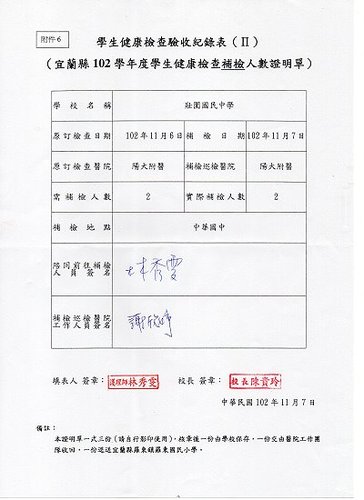 附件6
學生健康檢查驗收紀錄表(II)
(宜蘭縣102學年度學生健康檢查補檢人數證明單)
學校名稱 壯圍國民中學
原訂檢查日期 102年11月6日 補檢日期 102年11月7日
原訂檢查醫院 陽大附醫 補檢巡檢醫院 陽大附醫
需補檢人數 2 實際補檢人數 2
補檢地點 中華國中
陪同前往補檢
人員簽名 林秀雯
補檢巡檢醫院
工作人員簽名 謝欣婷
填表人 簽章: 護理師林秀雯 校長 簽章: 校長陳貴玲
中華民國102年11月7日
備註:
本證明單一式三份(請自行影印使用),核章後一份由學校保存,一份交由醫院工作團
隊收回,一份逕送宜蘭縣羅東鎮羅東國民小學。